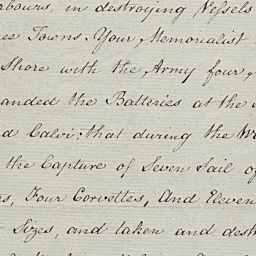 rbours, in destroying Vessels
ee Towns. Your Memorialist
Shore with the Army four
anded the Batteries at the
d Calvi; that during the W
the Capture of Seven Sail of
s, Four Corvettes, And Eleven
Sizes, and taken and dest